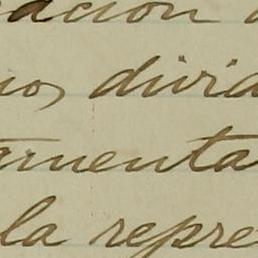 ación
ios divid
amenta
la repre